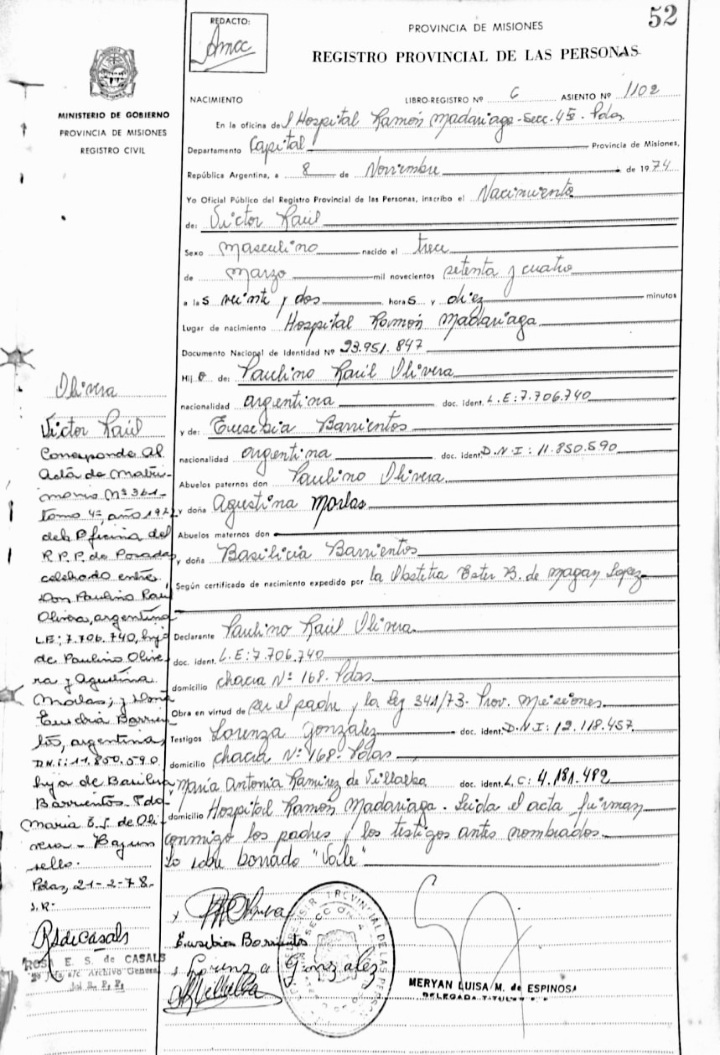 52
REDACTO:
Amcc
PROVINCIA DE MISIONES
REGISTRO PROVINCIAL DE LAS PERSONAS
MINISTERIO DE GOBIERNO
PROVINCIA DE MISIONES
REGISTRO CIVIL
NACIMIENTO LIBRO-REGISTRO Nº 6 ASIENTO Nº 1102
En la oficina del Hospital Ramón Madariaga - Secc. 4ª - Pdas
Departamento Capital Provincia de Misiones,
República Argentina, a 8 de Noviembre de 1974
Yo Oficial Público del Registro Provincial de las Personas, inscribo el Nacimiento
de: Victor Raúl
Sexo masculino nacido el trece
de marzo mil novecientos setenta y cuatro
a las veinte y dos horas y diez minutos
Lugar de nacimiento Hospital Ramón Madariaga
Documento Nacional de Identidad Nº 23.951.847
Hijo de: Paulino Raúl Olivera
nacionalidad argentina doc. ident. L.E: 7.706.740
y de: Eusebia Barrientos
nacionalidad argentina doc. ident. D.N.I: 11.850.590
Abuelos paternos don Paulino Olivera
y doña Agustina Morlas
Abuelos maternos don
y doña Basilicia Barrientos
Según certificado de nacimiento expedido por la Obstetra Ester B. de Magay Lopez
Declarante Paulino Raúl Olivera
doc. ident. L.E: 7.706.740
domicilio chacra Nº 168 - Pdas.
Obra en virtud de ser el padre y la Ley 341/73 - Prov. Misiones
Testigos Lorenza Gonzalez doc. ident. D.N.I: 12.118.457
domicilio chacra Nº 168 - Pdas
y Maria Antonia Ramirez de Villalba doc. ident. L.C: 4.181.482
domicilio Hospital Ramón Madariaga. Leida el acta firman
conmigo los padres y los testigos antes nombrados.
Lo sobre borrado "Vale"
Olivera
Victor Raúl
Corresponde Al
Acta de Matri-
monio Nº 361-
Tomo 4º, año 19
de la Oficina del
R.P.P. de Posadas
celebrado entre
Don Paulino Raul
Olivera, argentino
L.E: 7.706.740, hijo
de Paulino Olive-
ra y Agustina
Morlas; y Doña
Eusebia Barrien-
tos, argentina,
D.N.I: 11.850.590
hija de
Barrientos. Fdo
Maria E. S. de Oli-
vera -
sello.
Pdas, 21-2-78-
RSdeCasals
ROSA E. S. de CASALS
Archivo General
Eusebia Barrientos
Lorenza Gonzalez
Villalba
MERYAN LUISA M. de ESPINOSA
DELEGADA TITULAR